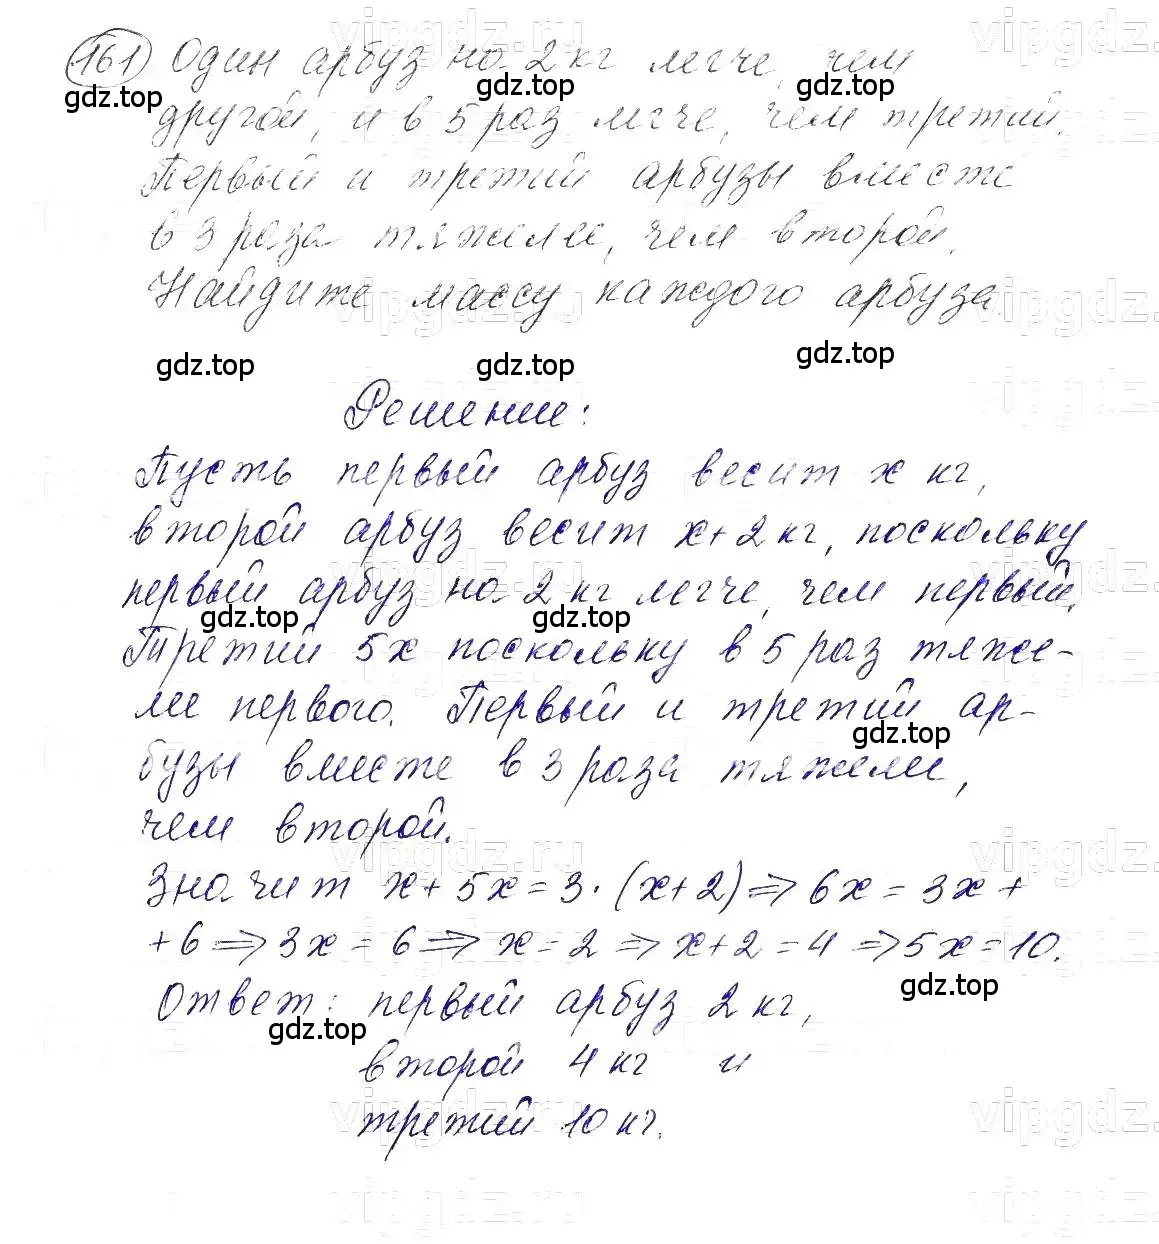 161 Один арбуз на 2 кг легче, чем
другой, и в 5 раз легче, чем третий.
Первый и третий арбузы вместе
в 3 раза тяжелее, чем второй.
Найдите массу каждого арбуза.
Решение:
Пусть первый арбуз весит x кг,
второй арбуз весит x+2 кг, поскольку
первый арбуз на 2 кг легче, чем первый.
Третий 5x поскольку в 5 раз тяже-
лее первого. Первый и третий ар-
бузы вместе в 3 раза тяжелее,
чем второй.
Значит x+5x=3·(x+2)⇒6x=3x+
+6⇒3x=6⇒x=2⇒x+2=4⇒5x=10.
Ответ: первый арбуз 2 кг,
второй 4 кг и
третий 10 кг.
gdz.top
gdz.top
gdz.top
gdz.top
gdz.top
gdz.top
gdz.top
gdz.top
gdz.top
gdz.top
gdz.top
vipgdz.ru
vipgdz.